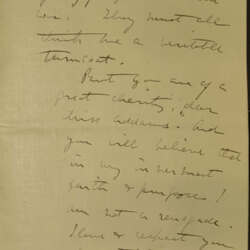 love. They must all
think me a veritable
turncoat.
But you are of a
great charity, dear
Miss Addams. And
you will believe that
in my innermost
faith & purpose I
am not a renegade.
I love & respect you